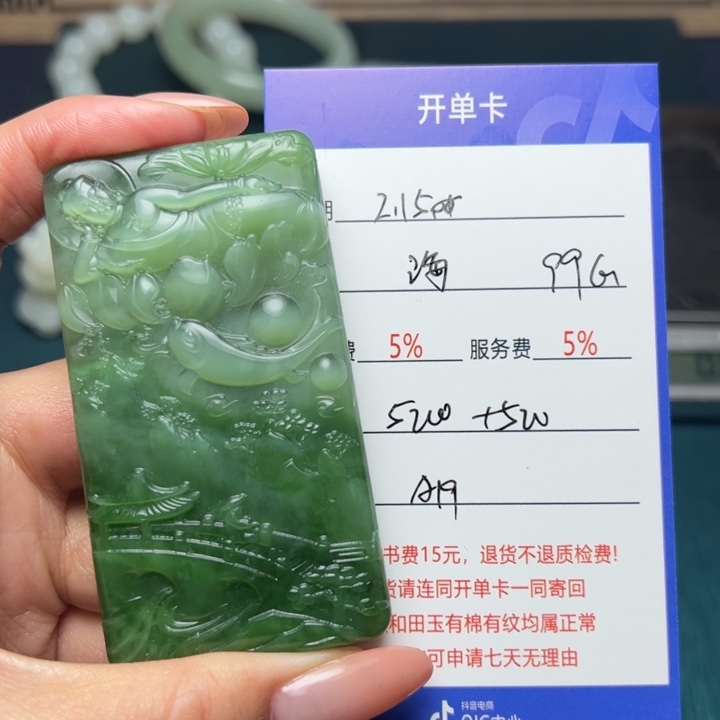 开单卡
2.15
海 99G
费 5% 服务费 5%
5200 +520
A19
书费15元，退货不退质检费!
货请连同开单卡一同寄回
和田玉有棉有纹均属正常
可申请七天无理由
抖音电商